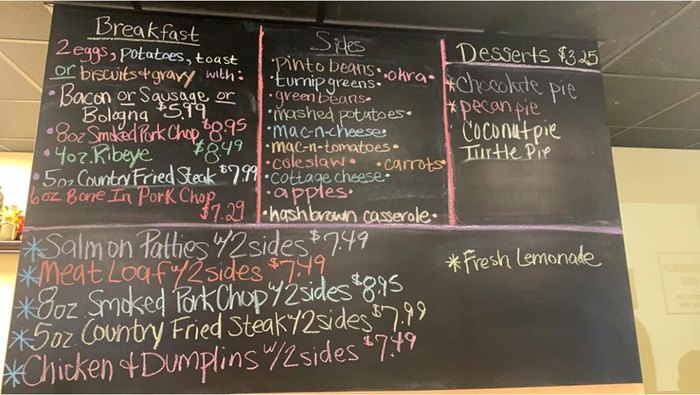 Breakfast
2 eggs, potatoes, toast
or biscuits + gravy with:
• Bacon or Sausage or
Bologna $5.99
• 8oz Smoked Pork Chop $8.95
• 4oz. Ribeye $8.49
• 5oz Country Fried Steak $7.99
6oz Bone In Pork Chop
$7.29
Sides
• Pinto beans •
• okra •
• turnip greens •
• green beans •
• mashed potatoes •
• mac-n-cheese •
• mac-n-tomatoes •
• coleslaw •
• carrots •
• cottage cheese •
• apples •
• hashbrown casserole •
Desserts $3.25
*chocolate pie
*pecan pie
Coconut pie
Turtle Pie
*Salmon Patties w/2 sides $7.49
*Meat Loaf w/2 sides $7.49
*8oz. Smoked Pork Chop w/2 sides $8.95
*5oz. Country Fried Steak w/2 sides $7.99
*Chicken & Dumplins w/2 sides $7.49
*Fresh Lemonade